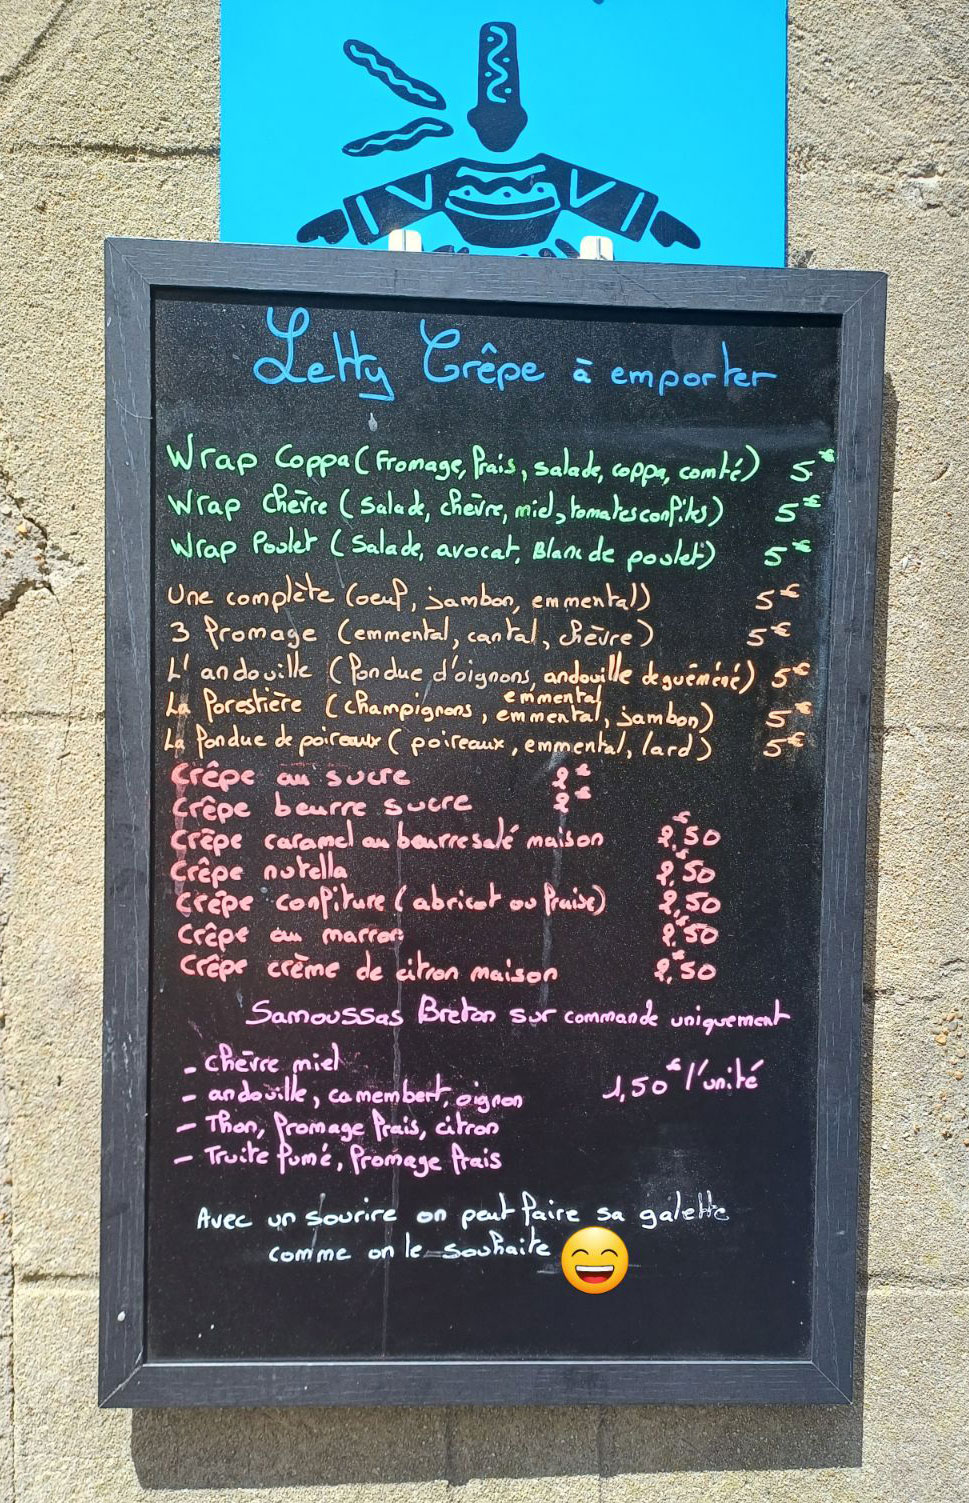 Letty Crêpe à emporter
Wrap Coppa (Fromage, frais, salade, coppa, comté) 5€
Wrap Chèvre (Salade, chèvre, miel, tomates confites) 5€
Wrap Poulet (Salade, avocat, Blanc de poulet) 5€
Une complète (oeuf, jambon, emmental) 5€
3 fromage (emmental, cantal, chèvre) 5€
L'andouille (fondue d'oignons, andouille de guéméné) 5€
emmental
La forestière (champignons, emmental, jambon) 5€
La fondue de poireaux (poireaux, emmental, lard) 5€
Crêpe au sucre 2€
Crêpe beurre sucre 2€
Crêpe caramel au beurre salé maison 2,€50
Crêpe nutella 2,€50
Crêpe confiture (abricot ou fraise) 2,€50
Crêpe au marron 2,€50
Crêpe crème de citron maison 2,€50
Samoussas Breton sur commande uniquement
- chèvre miel
- andouille, camembert, oignon 1,50€ l'unité
- Thon, fromage frais, citron
- Truite fumé, fromage frais
Avec un sourire on peut faire sa galette
comme on le souhaite 😄